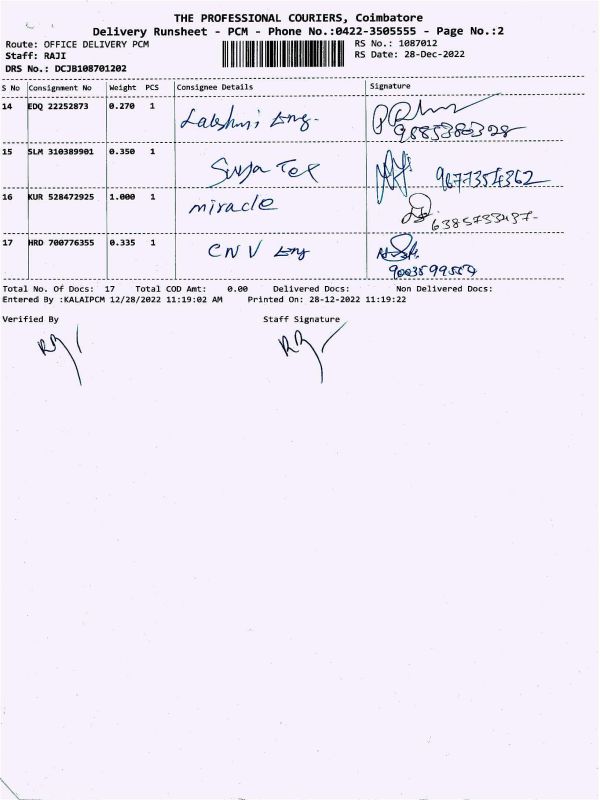 THE PROFESSIONAL COURIERS, Coimbatore
Delivery Runsheet - PCM - Phone No.:0422-3505555 - Page No.:2
Route: OFFICE DELIVERY PCM RS No.: 1087012
Staff: RAJI RS Date: 28-Dec-2022
DRS No.: DCJB108701202
S No Consignment No Weight PCS Consignee Details Signature
14 EDQ 22252873 0.270 1 Lakshmi Eng.
15 SLM 310389901 0.350 1 Surya Tex 9677354362
16 KUR 528472925 1.000 1 miracle
17 HRD 700776355 0.335 1 CNV Eng
Total No. Of Docs: 17 Total COD Amt: 0.00 Delivered Docs: Non Delivered Docs:
Entered By :KALAIPCM 12/28/2022 11:19:02 AM Printed On: 28-12-2022 11:19:22
Verified By Staff Signature